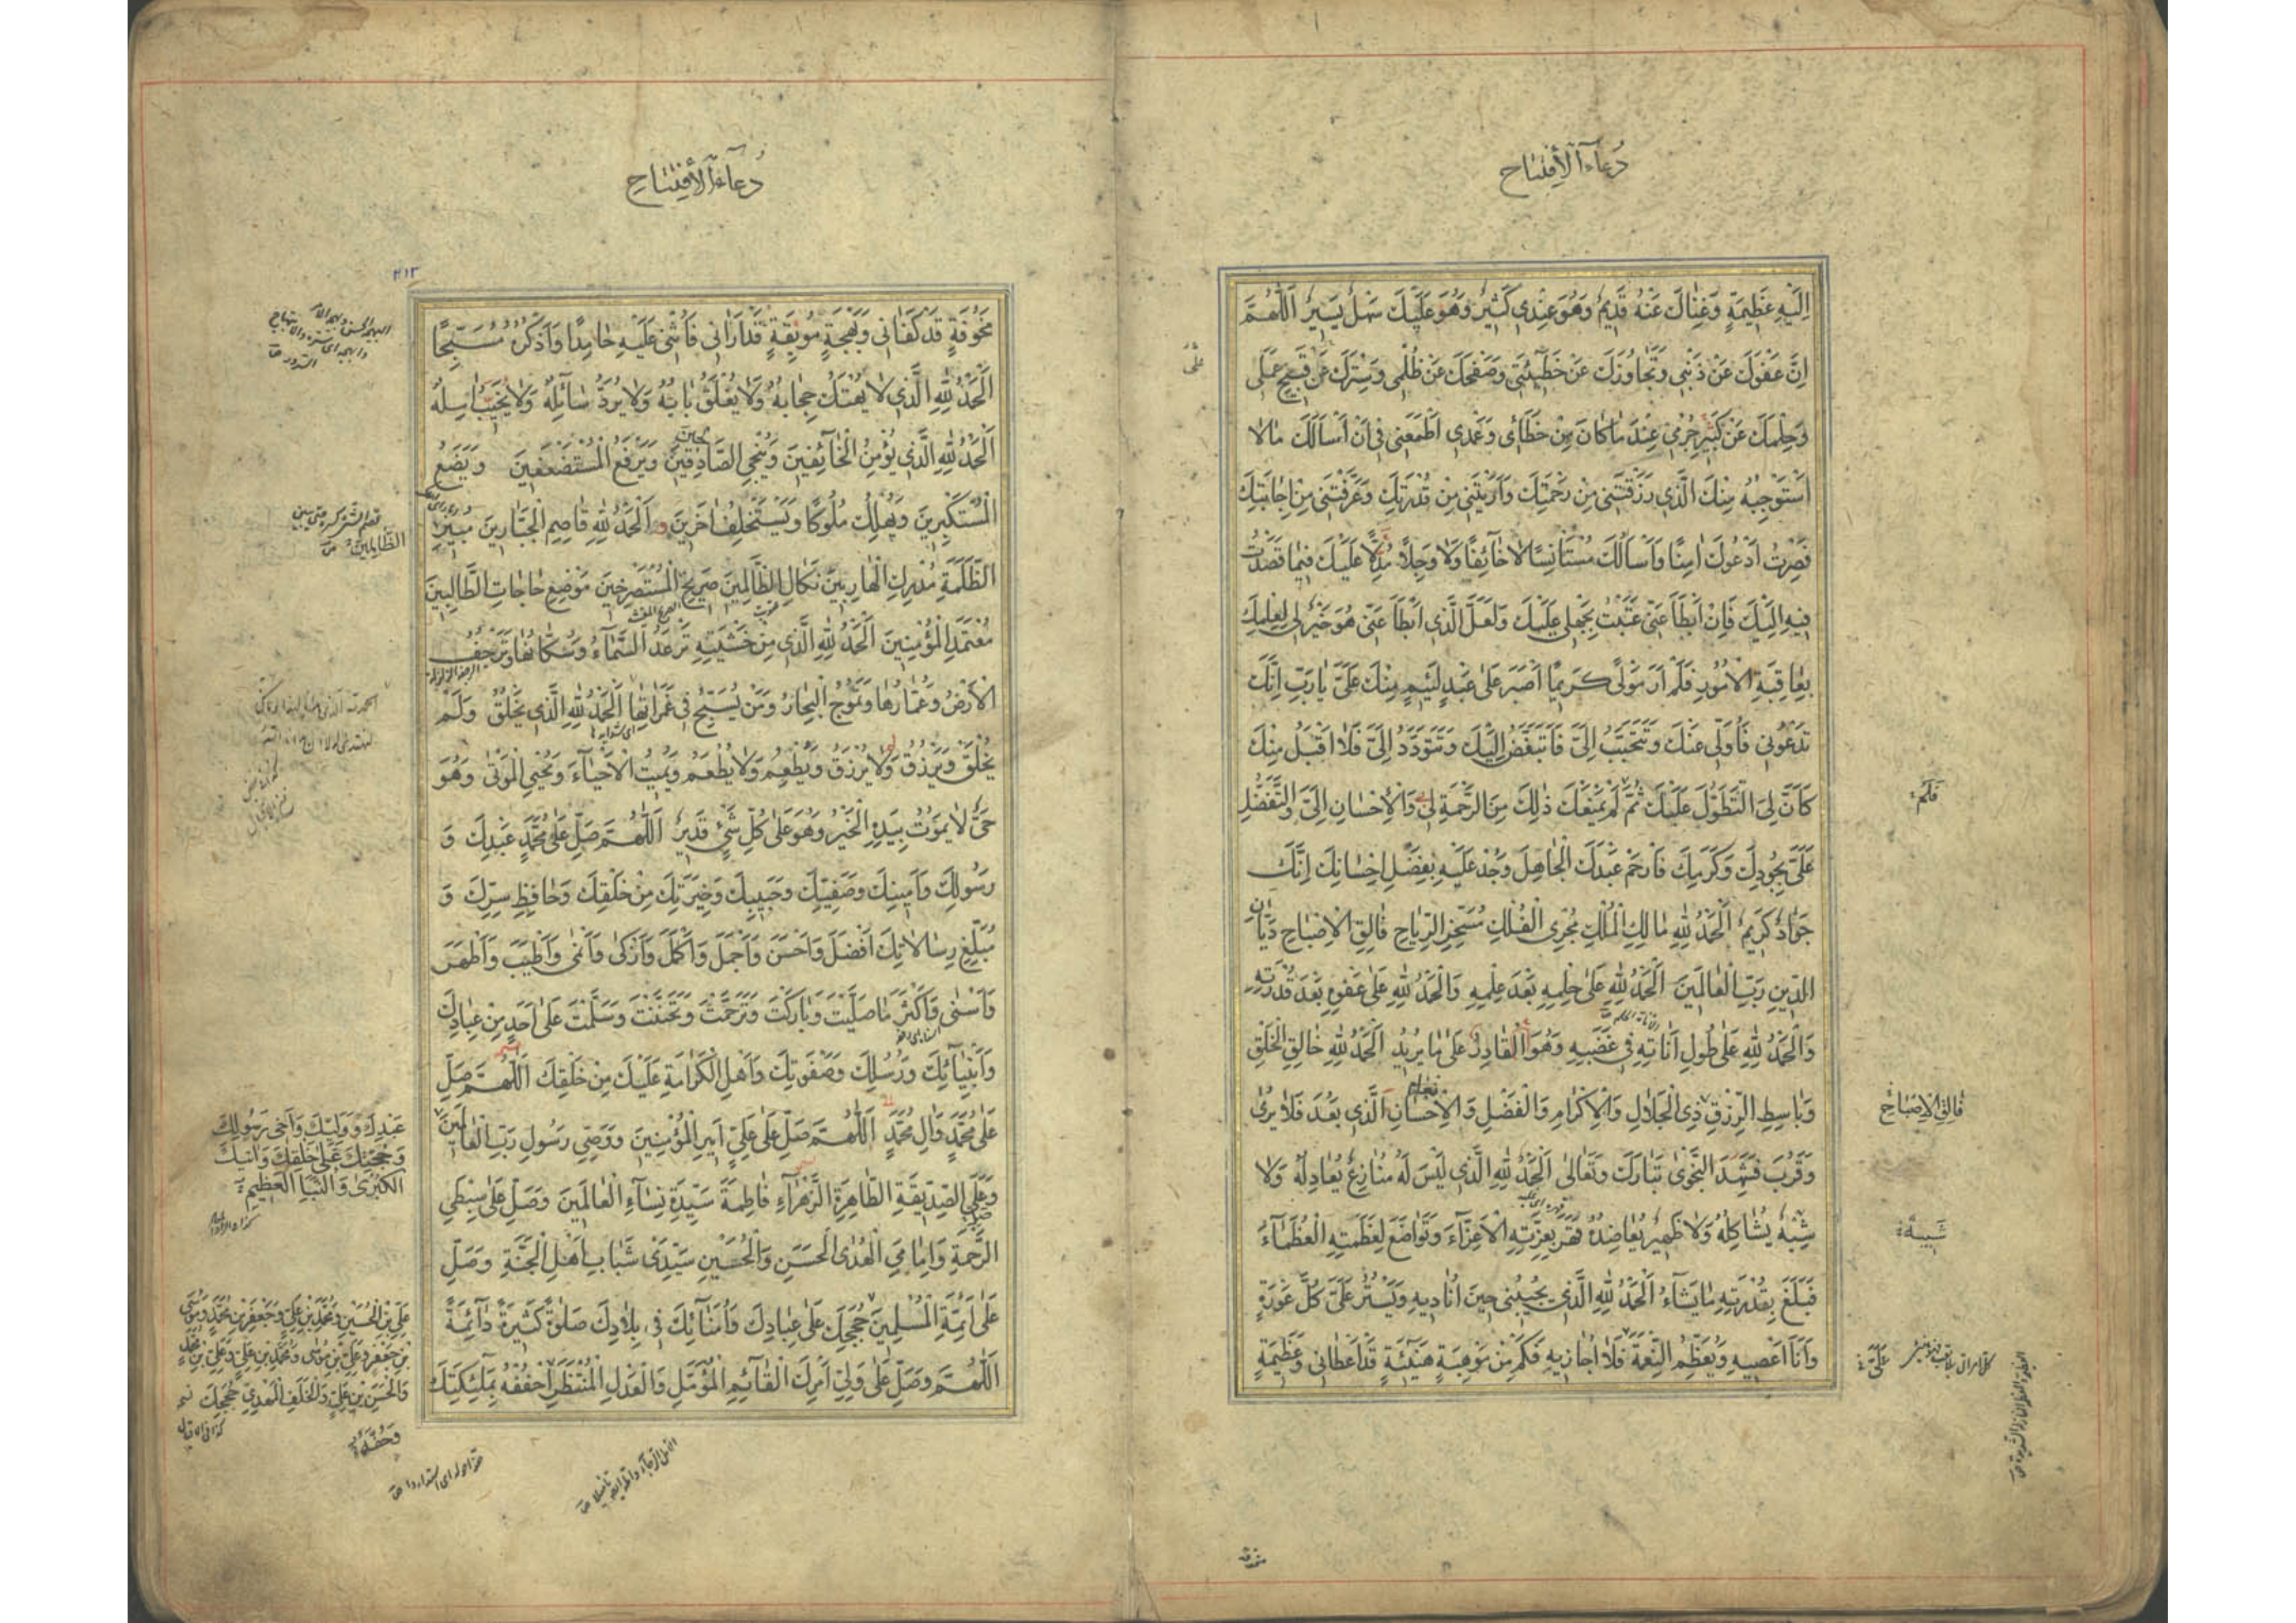 دُعَآءُ الْأِفْتِتَاحِ
اِلَيْهِ عَظِيمَةٍ وَغِنَاكَ عَنْهُ قَدِيمٌ وَهُوَ عِنْدِي كَثِيرٌ وَهُوَ عَلَيْكَ سَهْلٌ يَسِيرٌ اَللّٰهُمَّ
اِنَّ عَفْوَكَ عَنْ ذَنْبِي وَتَجَاوُزَكَ عَنْ خَطِيئَتِي وَصَفْحَكَ عَنْ ظُلْمِي وَسِتْرَكَ عَنْ قَبِيحِ عَمَلِي
وَحِلْمَكَ عَنْ كَبِيرِ جُرْمِي عِنْدَ مَا كَانَ مِنْ خَطَائِي وَعَمْدِي اَطْمَعَنِي فِي اَنْ اَسْأَلَكَ مَا لَا
اَسْتَوْجِبُهُ مِنْكَ الَّذِي رَزَقْتَنِي مِنْ رَحْمَتِكَ وَاَرَيْتَنِي مِنْ قُدْرَتِكَ وَعَرَّفْتَنِي مِنْ اِجَابَتِكَ
فَصِرْتُ اَدْعُوكَ اٰمِنًا وَاَسْأَلُكَ مُسْتَأْنِسًا لَا خَآئِفًا وَلَا وَجِلًا مُدِلًّا عَلَيْكَ فِيمَا قَصَدْتُ
فِيهِ اِلَيْكَ فَاِنْ اَبْطَأَ عَنِّي عَتَبْتُ بِجَهْلِي عَلَيْكَ وَلَعَلَّ الَّذِي اَبْطَأَ عَنِّي هُوَ خَيْرٌ لِي لِعِلْمِكَ
بِعَاقِبَةِ الْاُمُورِ فَلَمْ اَرَ مَوْلًى كَرِيمًا اَصْبَرَ عَلَى عَبْدٍ لَئِيمٍ مِنْكَ عَلَيَّ يَا رَبِّ اِنَّكَ
تَدْعُونِي فَاُوَلِّي عَنْكَ وَتَتَحَبَّبُ اِلَيَّ فَاَتَبَغَّضُ اِلَيْكَ وَتَتَوَدَّدُ اِلَيَّ فَلَا اَقْبَلُ مِنْكَ
كَاَنَّ لِيَ التَّطَوُّلَ عَلَيْكَ ثُمَّ لَمْ يَمْنَعْكَ ذٰلِكَ مِنَ الرَّحْمَةِ لِي وَالْاِحْسَانِ اِلَيَّ وَالتَّفَضُّلِ
فَلَمْ
عَلَيَّ بِجُودِكَ وَكَرَمِكَ فَارْحَمْ عَبْدَكَ الْجَاهِلَ وَجُدْ عَلَيْهِ بِفَضْلِ اِحْسَانِكَ اِنَّكَ
جَوَادٌ كَرِيمٌ اَلْحَمْدُ لِلّٰهِ مَالِكِ الْمُلْكِ مُجْرِي الْفُلْكِ مُسَخِّرِ الرِّيَاحِ فَالِقِ الْاِصْبَاحِ دَيَّانِ
الدِّينِ رَبِّ الْعَالَمِينَ اَلْحَمْدُ لِلّٰهِ عَلَى حِلْمِهِ بَعْدَ عِلْمِهِ وَالْحَمْدُ لِلّٰهِ عَلَى عَفْوِهِ بَعْدَ قُدْرَتِهِ
وَالْحَمْدُ لِلّٰهِ عَلَى طُولِ اَنَاتِهِ فِي غَضَبِهِ وَهُوَ الْقَادِرُ عَلَى مَا يُرِيدُ اَلْحَمْدُ لِلّٰهِ خَالِقِ الْخَلْقِ
وَبَاسِطِ الرِّزْقِ ذِي الْجَلَالِ وَالْاِكْرَامِ وَالْفَضْلِ وَالْاِحْسَانِ الَّذِي بَعُدَ فَلَا يُرٰى
فَالِقِ الْاِصْبَاحِ
وَقَرُبَ فَشَهِدَ النَّجْوٰى تَبَارَكَ وَتَعَالٰى اَلْحَمْدُ لِلّٰهِ الَّذِي لَيْسَ لَهُ مُنَازِعٌ يُعَادِلُهُ وَلَا
شِبْهٌ يُشَاكِلُهُ وَلَا ظَهِيرٌ يُعَاضِدُهُ قَهَرَ بِعِزَّتِهِ الْاَعِزَّآءَ وَتَوَاضَعَ لِعَظَمَتِهِ الْعُظَمَآءُ
شَبِيهٌ
فَبَلَغَ بِقُدْرَتِهِ مَا يَشَآءُ اَلْحَمْدُ لِلّٰهِ الَّذِي يُجِيبُنِي حِينَ اُنَادِيهِ وَيَسْتُرُ عَلَيَّ كُلَّ عَوْرَةٍ
وَاَنَا اَعْصِيهِ وَيُعَظِّمُ النِّعْمَةَ فَلَا اُجَازِيهِ فَكَمْ مِنْ مَوْهِبَةٍ هَنِيئَةٍ قَدْ اَعْطَانِي وَعَظِيمَةٍ
عَلَيَّ
دُعَآءُ الْأِفْتِتَاحِ
٢١٣
مَخُوفَةٍ قَدْ كَفَانِي وَبَهْجَةٍ مُونِقَةٍ قَدْ اَرَانِي فَاُثْنِي عَلَيْهِ حَامِدًا وَاَذْكُرُهُ مُسَبِّحًا
اَلْحَمْدُ لِلّٰهِ الَّذِي لَا يُهْتَكُ حِجَابُهُ وَلَا يُغْلَقُ بَابُهُ وَلَا يُرَدُّ سَآئِلُهُ وَلَا يُخَيَّبُ اٰمِلُهُ
اَلْحَمْدُ لِلّٰهِ الَّذِي يُؤْمِنُ الْخَآئِفِينَ وَيُنَجِّي الصَّادِقِينَ وَيَرْفَعُ الْمُسْتَضْعَفِينَ وَيَضَعُ
الْمُسْتَكْبِرِينَ وَيُهْلِكُ مُلُوكًا وَيَسْتَخْلِفُ اٰخَرِينَ وَ اَلْحَمْدُ لِلّٰهِ قَاصِمِ الْجَبَّارِينَ مُبِيرِ
الظَّالِمِينَ
الظَّلَمَةِ مُدْرِكِ الْهَارِبِينَ نَكَالِ الظَّالِمِينَ صَرِيخِ الْمُسْتَصْرِخِينَ مَوْضِعِ حَاجَاتِ الطَّالِبِينَ
مُعْتَمَدِ الْمُؤْمِنِينَ اَلْحَمْدُ لِلّٰهِ الَّذِي مِنْ خَشْيَتِهِ تَرْعَدُ السَّمَآءُ وَسُكَّانُهَا وَتَرْجُفُ
الْاَرْضُ وَعُمَّارُهَا وَتَمُوجُ الْبِحَارُ وَمَنْ يُسَبِّحُ فِي غَمَرَاتِهَا اَلْحَمْدُ لِلّٰهِ الَّذِي يَخْلُقُ وَلَمْ
يُخْلَقْ وَيَرْزُقُ وَلَا يُرْزَقُ وَيُطْعِمُ وَلَا يُطْعَمُ وَيُمِيتُ الْاَحْيَآءَ وَيُحْيِي الْمَوْتٰى وَهُوَ
حَيٌّ لَا يَمُوتُ بِيَدِهِ الْخَيْرُ وَهُوَ عَلَى كُلِّ شَيْءٍ قَدِيرٌ اَللّٰهُمَّ صَلِّ عَلَى مُحَمَّدٍ عَبْدِكَ وَ
رَسُولِكَ وَاَمِينِكَ وَصَفِيِّكَ وَحَبِيبِكَ وَخِيَرَتِكَ مِنْ خَلْقِكَ وَحَافِظِ سِرِّكَ وَ
مُبَلِّغِ رِسَالَاتِكَ اَفْضَلَ وَاَحْسَنَ وَاَجْمَلَ وَاَكْمَلَ وَاَزْكٰى وَاَنْمٰى وَاَطْيَبَ وَاَطْهَرَ
وَاَسْنٰى وَاَكْثَرَ مَا صَلَّيْتَ وَبَارَكْتَ وَتَرَحَّمْتَ وَتَحَنَّنْتَ وَسَلَّمْتَ عَلَى اَحَدٍ مِنْ عِبَادِكَ
وَاَنْبِيَآئِكَ وَرُسُلِكَ وَصَفْوَتِكَ وَاَهْلِ الْكَرَامَةِ عَلَيْكَ مِنْ خَلْقِكَ اَللّٰهُمَّ صَلِّ
عَلَى مُحَمَّدٍ وَاٰلِ مُحَمَّدٍ اَللّٰهُمَّ صَلِّ عَلَى عَلِيٍّ اَمِيرِ الْمُؤْمِنِينَ وَوَصِيِّ رَسُولِ رَبِّ الْعَالَمِينَ
عَبْدِكَ وَوَلِيِّكَ وَاَخِي رَسُولِكَ
وَحُجَّتِكَ عَلَى خَلْقِكَ وَاٰيَتِكَ
الْكُبْرٰى وَالنَّبَأِ الْعَظِيمِ
وَعَلَى الصِّدِّيقَةِ الطَّاهِرَةِ الزَّهْرَآءِ فَاطِمَةَ سَيِّدَةِ نِسَآءِ الْعَالَمِينَ وَصَلِّ عَلَى سِبْطَيِ
الرَّحْمَةِ وَاِمَامَيِ الْهُدَى الْحَسَنِ وَالْحُسَيْنِ سَيِّدَيْ شَبَابِ اَهْلِ الْجَنَّةِ وَصَلِّ
عَلَى اَئِمَّةِ الْمُسْلِمِينَ حُجَجِكَ عَلَى عِبَادِكَ وَاُمَنَآئِكَ فِي بِلَادِكَ صَلٰوةً كَثِيرَةً دَآئِمَةً
عَلِيِّ بْنِ الْحُسَيْنِ وَمُحَمَّدِ بْنِ عَلِيٍّ وَجَعْفَرِ بْنِ مُحَمَّدٍ وَمُوسَى
بْنِ جَعْفَرٍ وَعَلِيِّ بْنِ مُوسٰى وَمُحَمَّدِ بْنِ عَلِيٍّ وَعَلِيِّ بْنِ مُحَمَّدٍ
وَالْحَسَنِ بْنِ عَلِيٍّ وَالْخَلَفِ الْمَهْدِيِّ حُجَجِكَ
اَللّٰهُمَّ وَصَلِّ عَلَى وَلِيِّ اَمْرِكَ الْقَآئِمِ الْمُؤَمَّلِ وَالْعَدْلِ الْمُنْتَظَرِ احْفُفْهُ بِمَلٰئِكَتِكَ
وَحُفَّهُ